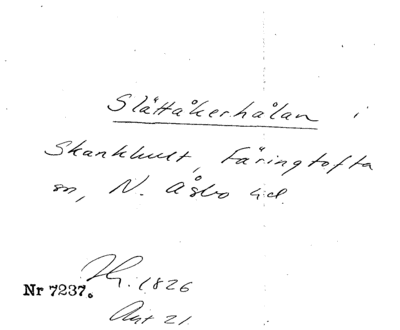 Slättåkerhålan i
Skankhult, Färingtofta
sn, N. Åsbo hd.
Nr 7237. 1826
Akt 21.